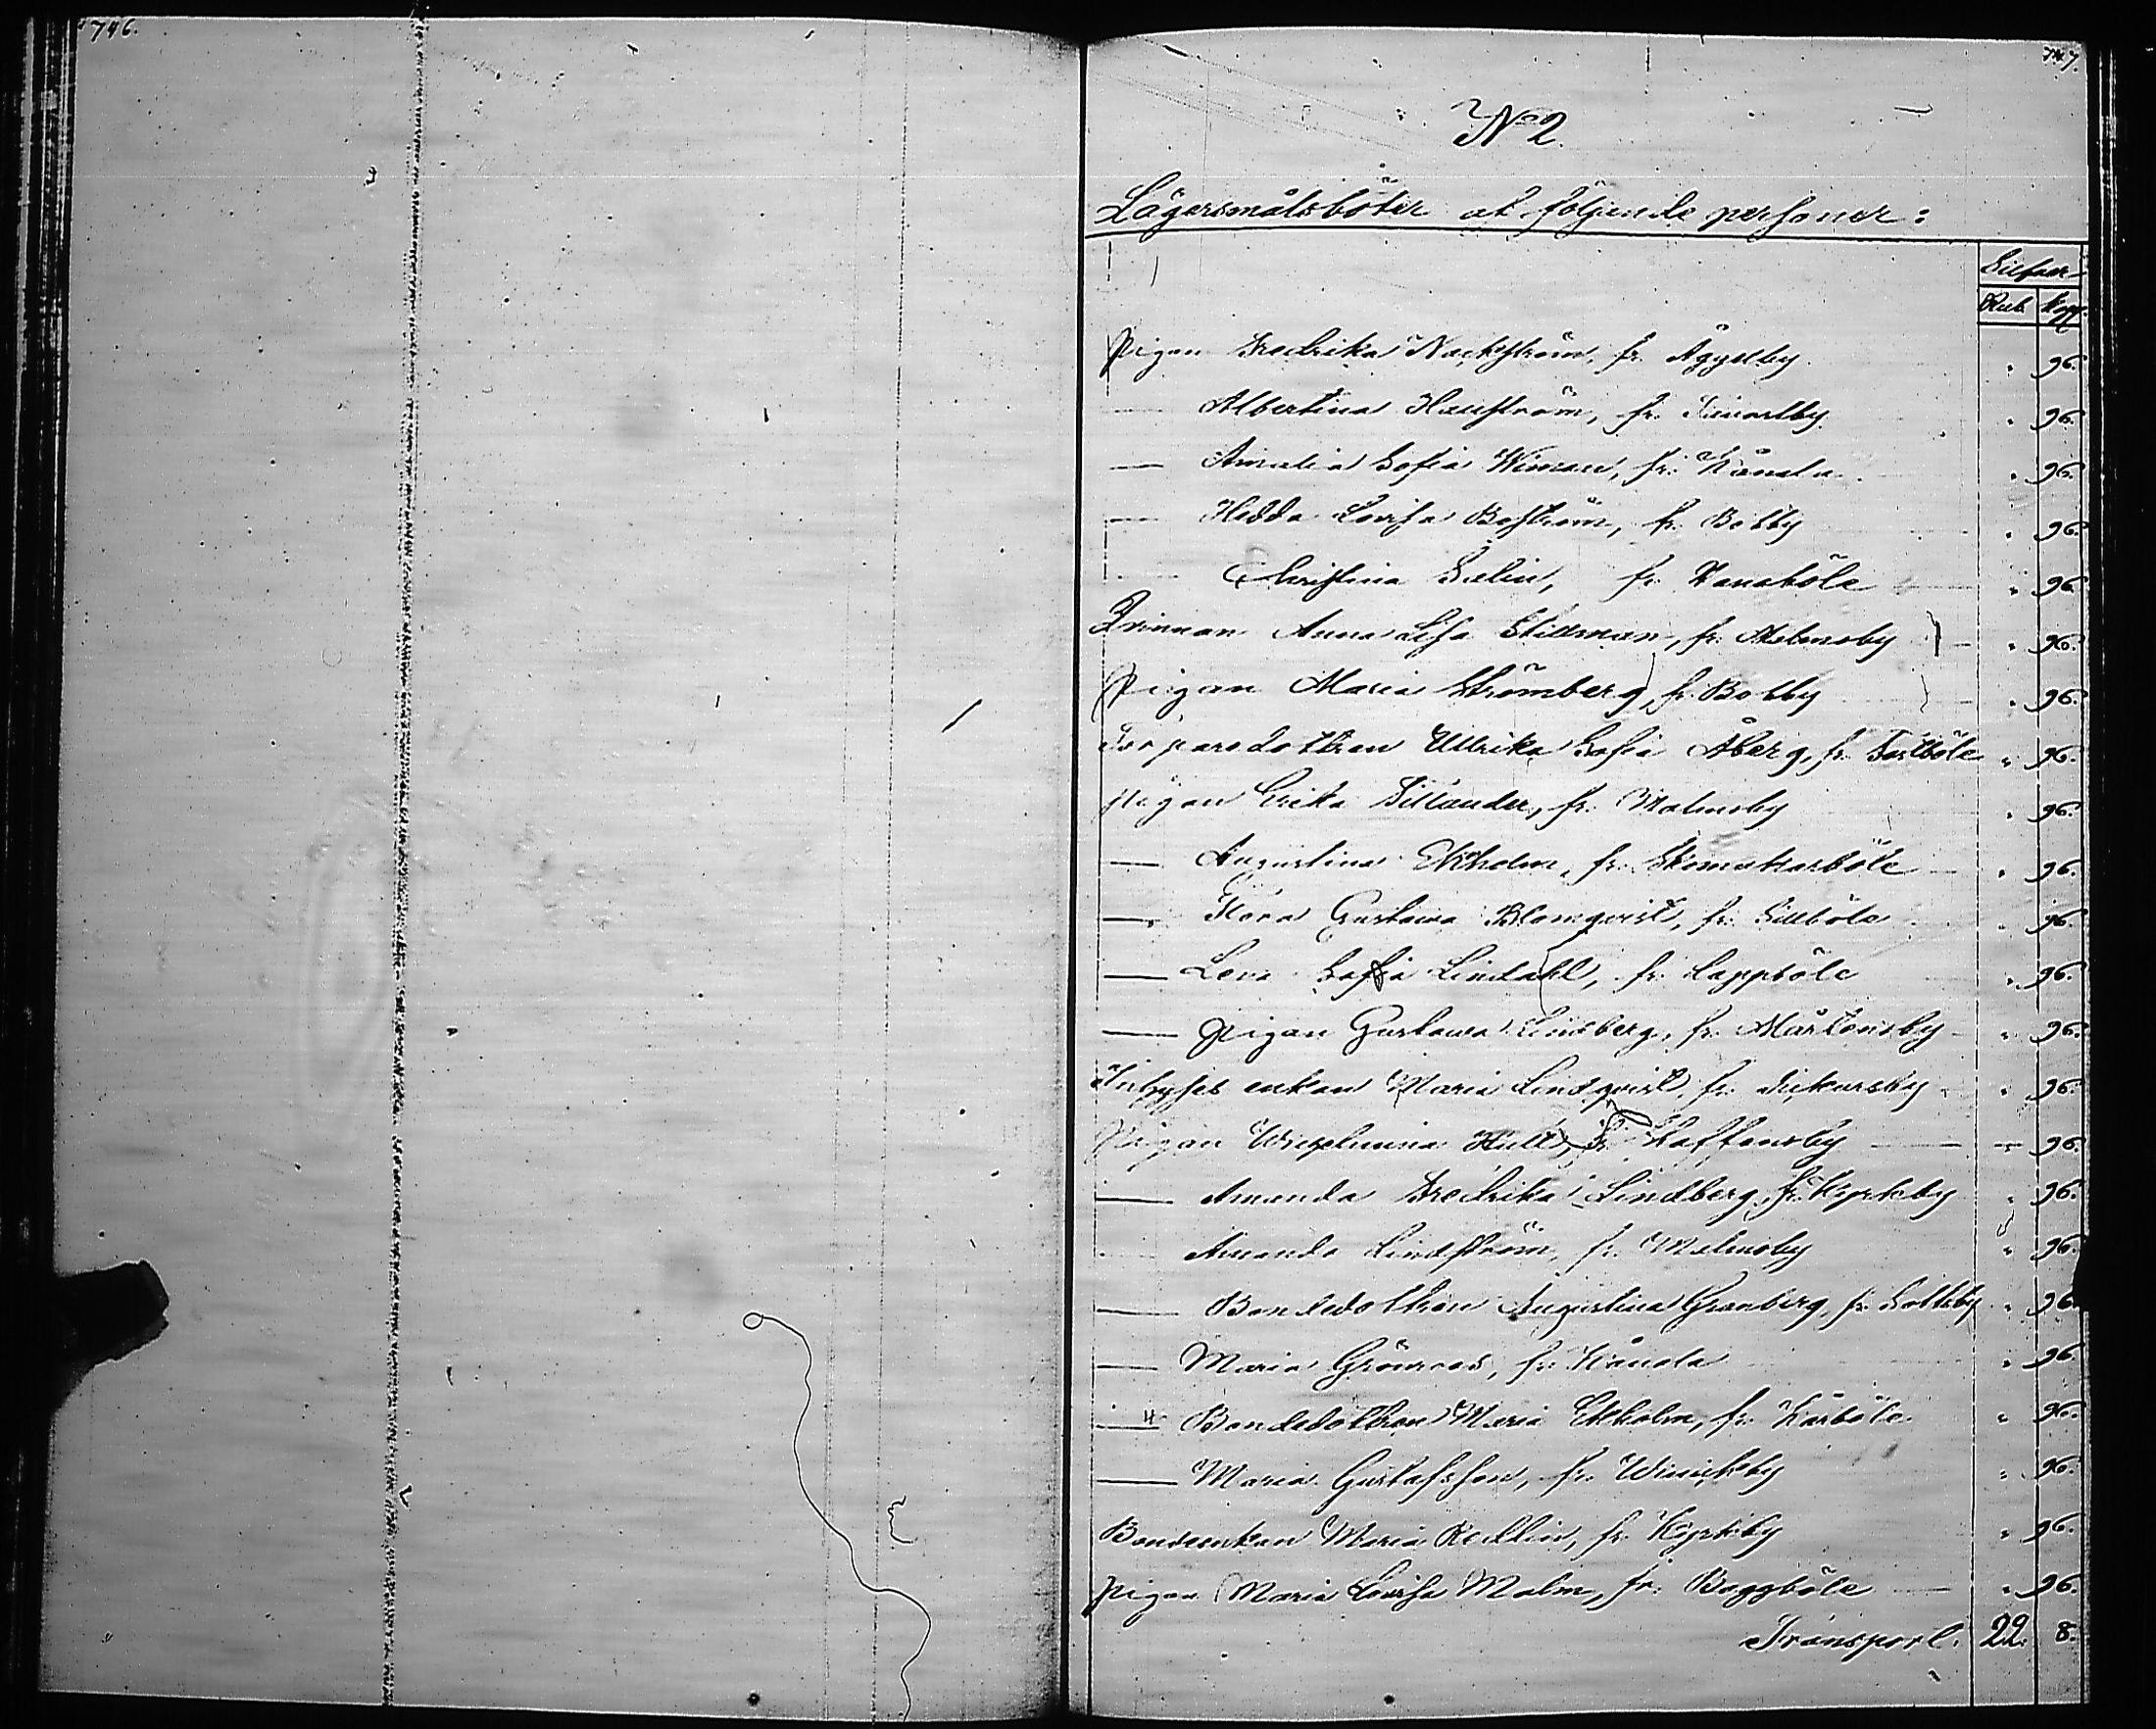 746.
747.
No 2.
Lägersmålsböter af följande personer:
Silfver
Rub. Kop.
Pigan Fredrika Nackström, fr. Åggelby . 96.
— Albertina Hauström, fr. . 96.
— Amalia Sofia Wiman, fr. Kånala . 96.
— Hedda Lovisa Boström, fr. Botby . 96.
— Christina Selin, fr. Kanaböle . 96
Qvinnan Anna Lisa Stillman, fr. Malmsby . 96.
Pigan Maria Strömberg, fr. Botby . 96.
Torparedottren Ullrika Sofia Åberg, fr. Furtböle . 96.
Pigan Erika Sillander, fr. Malmsby . 96.
— Augustina Ekholm, fr. Skomakarböle . 96.
— Flora Gustava Blomqvist, fr. Sillböle . 96.
— Lena Sofia Lindahl, fr. Lappböle . 96.
— Pigan Gustava Lindberg, fr. Mårtensby . 96.
Inhyses enkan Maria Lindqvist, fr. Dickursby . 96.
Pigan Wilhelmina Hult, fr. Staffansby — 96.
— Amanda Fredrika Lindberg, fr. Kyrkoby . 96.
Amanda Lindström, fr. Malmsby . 96.
— Bondedottren Augustina Granberg, fr. Sottsby . 96.
— Maria Grönroos, fr. Kånala . 96.
— Bondedottren Maria Ekholm, fr. Kårböle . 96.
— Maria Gustafsson, fr. Winicksby . 96.
Bondeenkan Maria Redlin, fr. Kyrkoby . 96.
Pigan Maria Lovisa Malm, fr. Baggböle — . 96.
Transport. 22. 8.